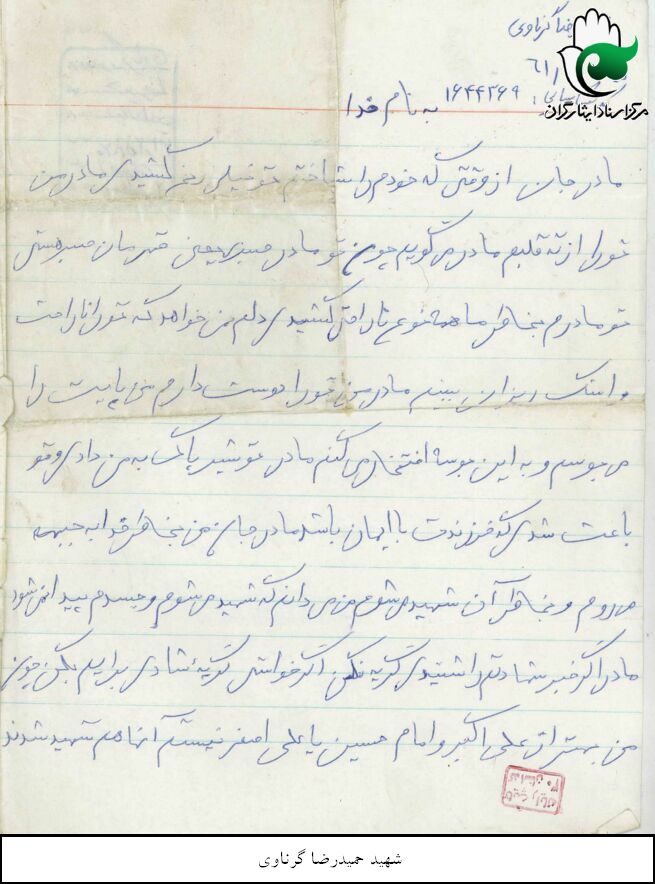 رضا گرناوی
۶۱/
۱۶۴۴۳۶۹
مرکز اسناد ایثارگران
به نام خدا
مادر جان از وقتی که خودم را شناختم تو خیلی رنج کشیدی مادر من
تو را از ته قلبم مادر می گویم چون تو مادر صبری یعنی قهرمان صبر هستی
تو مادرم بخاطر ما همه نوع ناراحتی کشیدی دلم نمی خواهد که تو را ناراحت
و اشک ریزان ببینم مادر من تو را دوست دارم من پایت را
می بوسم و به این بوسه افتخار می کنم مادر تو شیر پاک به من دادی و تو
باعث شدی که فرزندت با ایمان باشد مادر جان من بخاطر خدا به جبهه
می روم و بخاطر آن شهید می شوم من می دانم که شهید می شوم و جسدم پیدا نمی شود
مادر اگر خبر شهادتم را شنیدی گریه نکن اگر خواستی گریه شادی برایم بکن چون
من بهتر از علی اکبر و امام حسین یا علی اصغر نیستم آنها هم شهید شدند
شهید حمیدرضا گرناوی